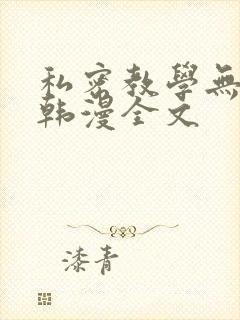 私密教學無
韩漫全文
漆青